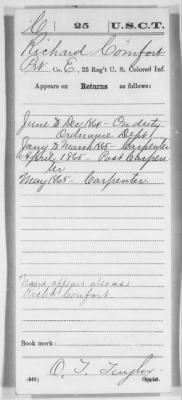 C 25 U.S.C.T.
Richard Comfort
Pvt., Co. E, 25 Reg't U. S. Colored Inf.
Appears on Returns as follows:
June to Dec. 1864 - On duty
Ordnance Dept
Jany to March 1865 - Carpenter
April 1865 - Post Carpen
ter
May 1865 - Carpenter
Name appears also as
Richd Comfort
Book mark:
(546) Copyist.